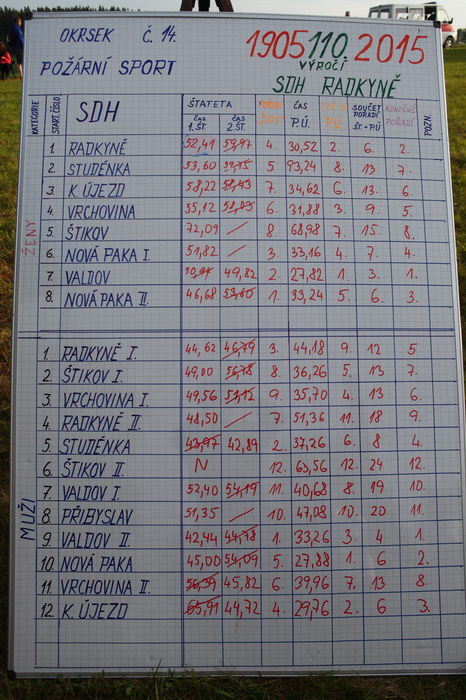 OKRSEK Č. 14.
1905 110. 2015
VÝROČÍ
POŽÁRNÍ SPORT
SDH RADKYNĚ
KATEGORIE START. ČÍSLO SDH ŠTAFETA ČAS P.Ú. SOUČET POŘADÍ ŠT.+P.Ú POZN.
ČAS 1.ŠT. ČAS 2.ŠT.
ŽENY
1. RADKYNĚ 52,41 59,97 4. 30,52 2. 6. 2.
2. STUDÉNKA 53,60 5 93,24 8. 13 7.
3. K. ÚJEZD 58,22 58,43 7. 34,62 6. 13. 6.
4. VRCHOVINA 55,12 6. 31,88 3. 9. 5.
5. ŠTIKOV 72,09 / 8. 68,98 7. 15. 8.
6. NOVÁ PAKA I. 51,82 / 3. 33,16 4. 7. 4.
7. VALDOV 49,82 2. 27,82 1. 3. 1.
8. NOVÁ PAKA II. 46,68 53,60 1. 33,24 5. 6. 3.
MUŽI
1. RADKYNĚ I. 44,62 46,79 3. 44,18 9. 12 5
2. ŠTIKOV I. 49,00 56,78 8. 36,26 5. 13 7.
3. VRCHOVINA I. 49,56 51,12 9. 35,70 4. 13 6.
4. RADKYNĚ II. 48,50 / 7. 51,36 11. 18 9.
5. STUDÉNKA 43,97 42,89 2. 37,26 6. 8 4.
6. ŠTIKOV II. N 12. 63,56 12. 24 12.
7. VALDOV I. 52,40 54,19 11. 40,68 8. 19 10.
8. PŘIBYSLAV 51,35 / 10. 47,08 10. 20 11.
9. VALDOV II. 42,44 44,78 1. 33,26 3. 4 1.
10. NOVÁ PAKA 45,00 54,09 5. 27,88 1. 6 2.
11. VRCHOVINA II. 56,39 45,82 6. 39,96 7. 13 8.
12. K. ÚJEZD 65,91 44,72 4. 29,76 2. 6 3.